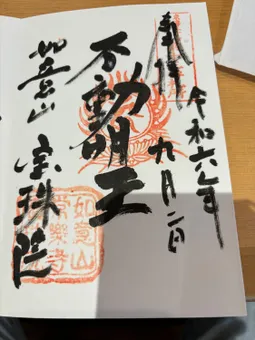 奉拝
令和六年
九月二日
不動明王
如意山
宝珠院
如意山